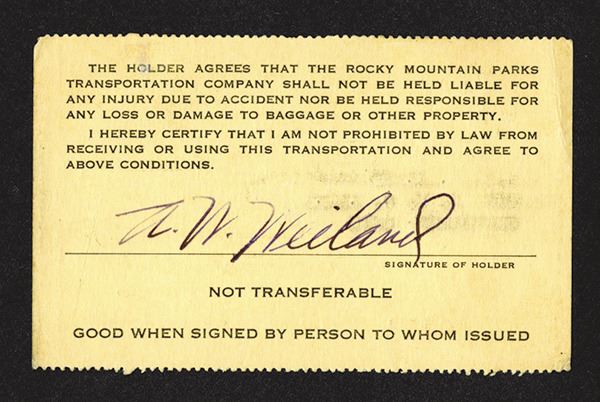 THE HOLDER AGREES THAT THE ROCKY MOUNTAIN PARKS
TRANSPORTATION COMPANY SHALL NOT BE HELD LIABLE FOR
ANY INJURY DUE TO ACCIDENT NOR BE HELD RESPONSIBLE FOR
ANY LOSS OR DAMAGE TO BAGGAGE OR OTHER PROPERTY.
I HEREBY CERTIFY THAT I AM NOT PROHIBITED BY LAW FROM
RECEIVING OR USING THIS TRANSPORTATION AND AGREE TO
ABOVE CONDITIONS.
A. W. Weiland
SIGNATURE OF HOLDER
NOT TRANSFERABLE
GOOD WHEN SIGNED BY PERSON TO WHOM ISSUED